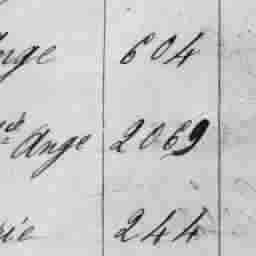 Ange 604
Ange 2069
rie 244